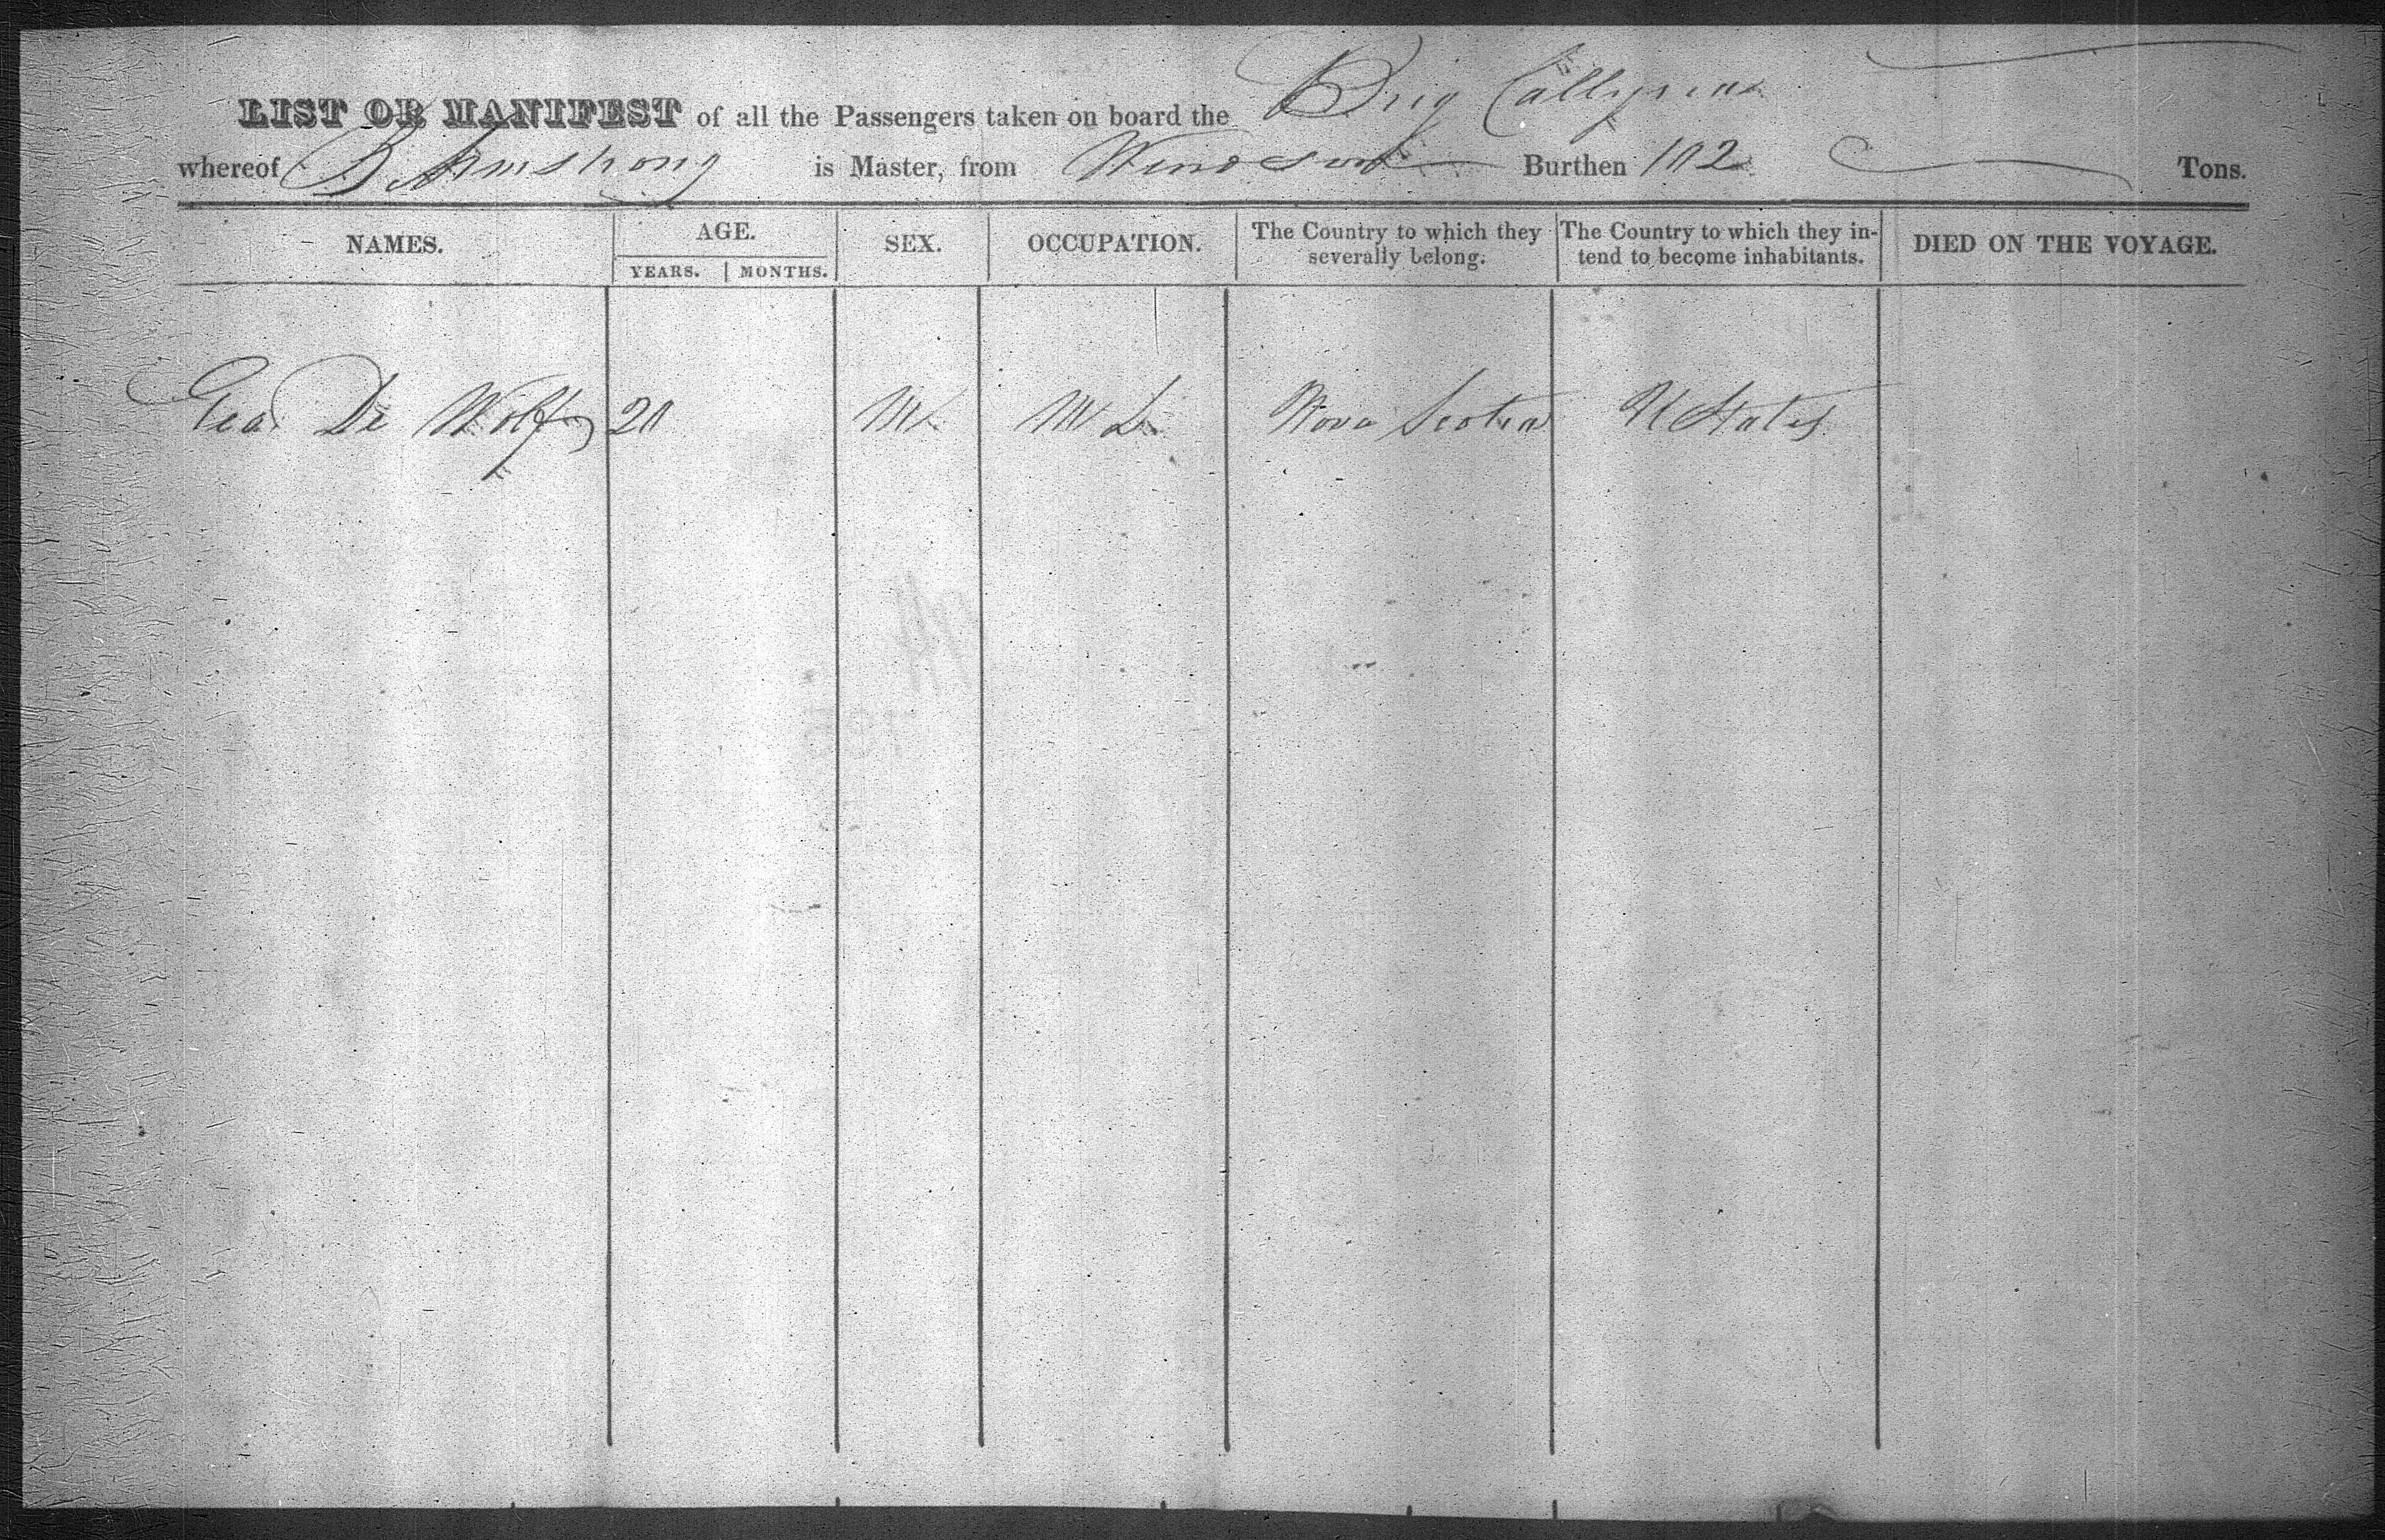 LIST OR MANIFEST of all the Passengers taken on board the Brig
whereof B Armstrong is Master, from Windsor Burthen 102 Tons.
NAMES. AGE. SEX. OCCUPATION. The Country to which they severally belong. The Country to which they intend to become inhabitants. DIED ON THE VOYAGE.
YEARS. MONTHS.
Geo De Wolf 20 M M D Nova Scotia U States